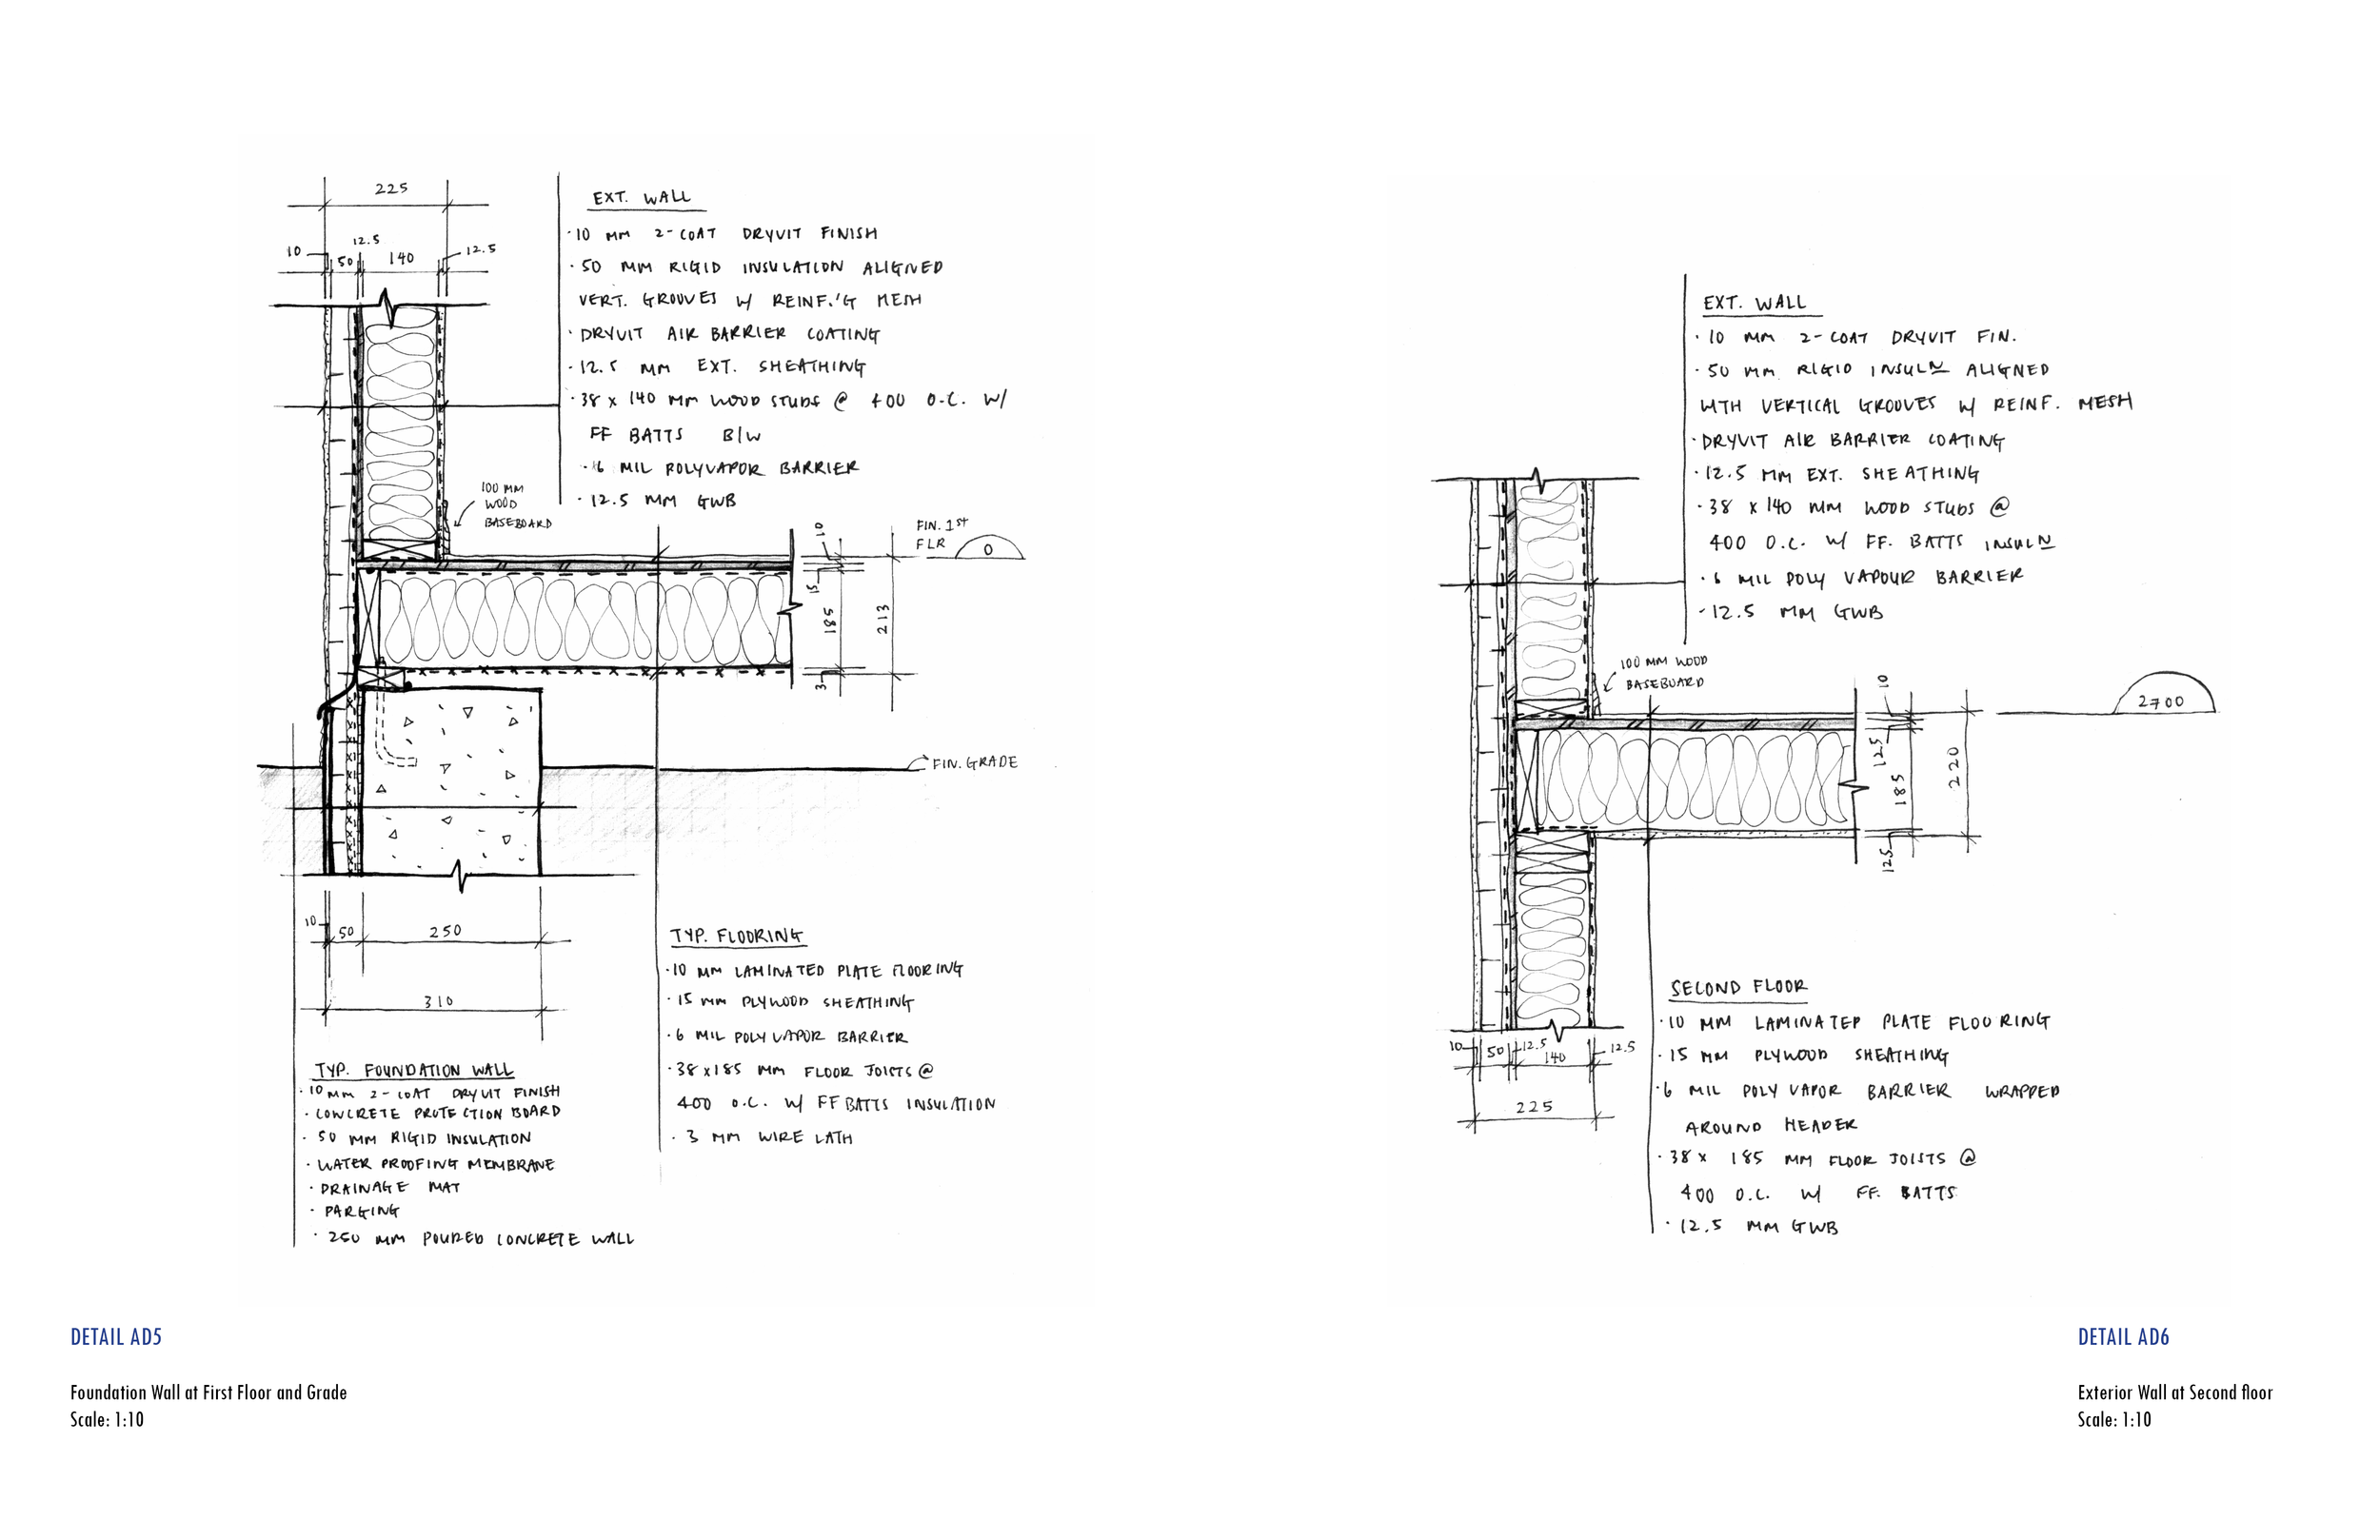 225
10
50
12.5
140
12.5
EXT. WALL
·10 MM 2-COAT DRYVIT FINISH
·50 MM RIGID INSULATION ALIGNED
VERT. GROOVES W/ REINF.'G MESH
·DRYVIT AIR BARRIER COATING
·12.5 MM EXT. SHEATHING
·38 x 140 MM WOOD STUDS @ 400 O.C. W/
FF BATTS B/W
·6 MIL POLYVAPOR BARRIER
·12.5 MM GWB
100 MM
WOOD
BASEBOARD
FIN. 1ST
FLR
0
10
15
185
3
213
FIN. GRADE
10
50
250
310
TYP. FOUNDATION WALL
·10 MM 2-COAT DRYVIT FINISH
·CONCRETE PROTECTION BOARD
·50 MM RIGID INSULATION
·WATER PROOFING MEMBRANE
·DRAINAGE MAT
·PARGING
·250 MM POURED CONCRETE WALL
TYP. FLOORING
·10 MM LAMINATED PLATE FLOORING
·15 MM PLYWOOD SHEATHING
·6 MIL POLY VAPOR BARRIER
·38x185 MM FLOOR JOISTS @
400 O.C. W/ FF BATTS INSULATION
·3 MM WIRE LATH
DETAIL AD5
Foundation Wall at First Floor and Grade
Scale: 1:10
EXT. WALL
·10 MM 2-COAT DRYVIT FIN.
·50 MM RIGID INSULN ALIGNED
WITH VERTICAL GROOVES W/ REINF. MESH
·DRYVIT AIR BARRIER COATING
·12.5 MM EXT. SHEATHING
·38 x 140 MM WOOD STUDS @
400 O.C. W/ FF. BATTS INSULN
·6 MIL POLY VAPOUR BARRIER
·12.5 MM GWB
100 MM WOOD
BASEBOARD
2700
10
125
185
125
220
10
50
12.5
140
12.5
225
SECOND FLOOR
·10 MM LAMINATED PLATE FLOORING
·15 MM PLYWOOD SHEATHING
·6 MIL POLY VAPOR BARRIER WRAPPED
AROUND HEADER
·38 x 185 MM FLOOR JOISTS @
400 O.C. W/ FF. BATTS
·12.5 MM GWB
DETAIL AD6
Exterior Wall at Second floor
Scale: 1:10